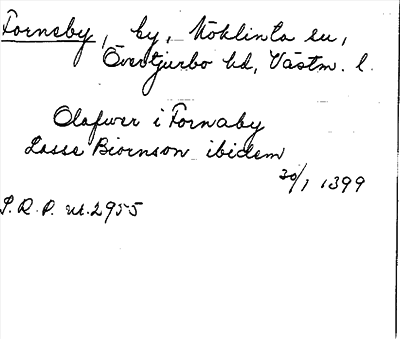 Fornsby, by, Nöklinta sn,
Övertjurbo hd, Västm. l.
Olafwer i Fornaby
Lasse Biornson ibidem
30/1 1399
S.R.P. nr. 2955